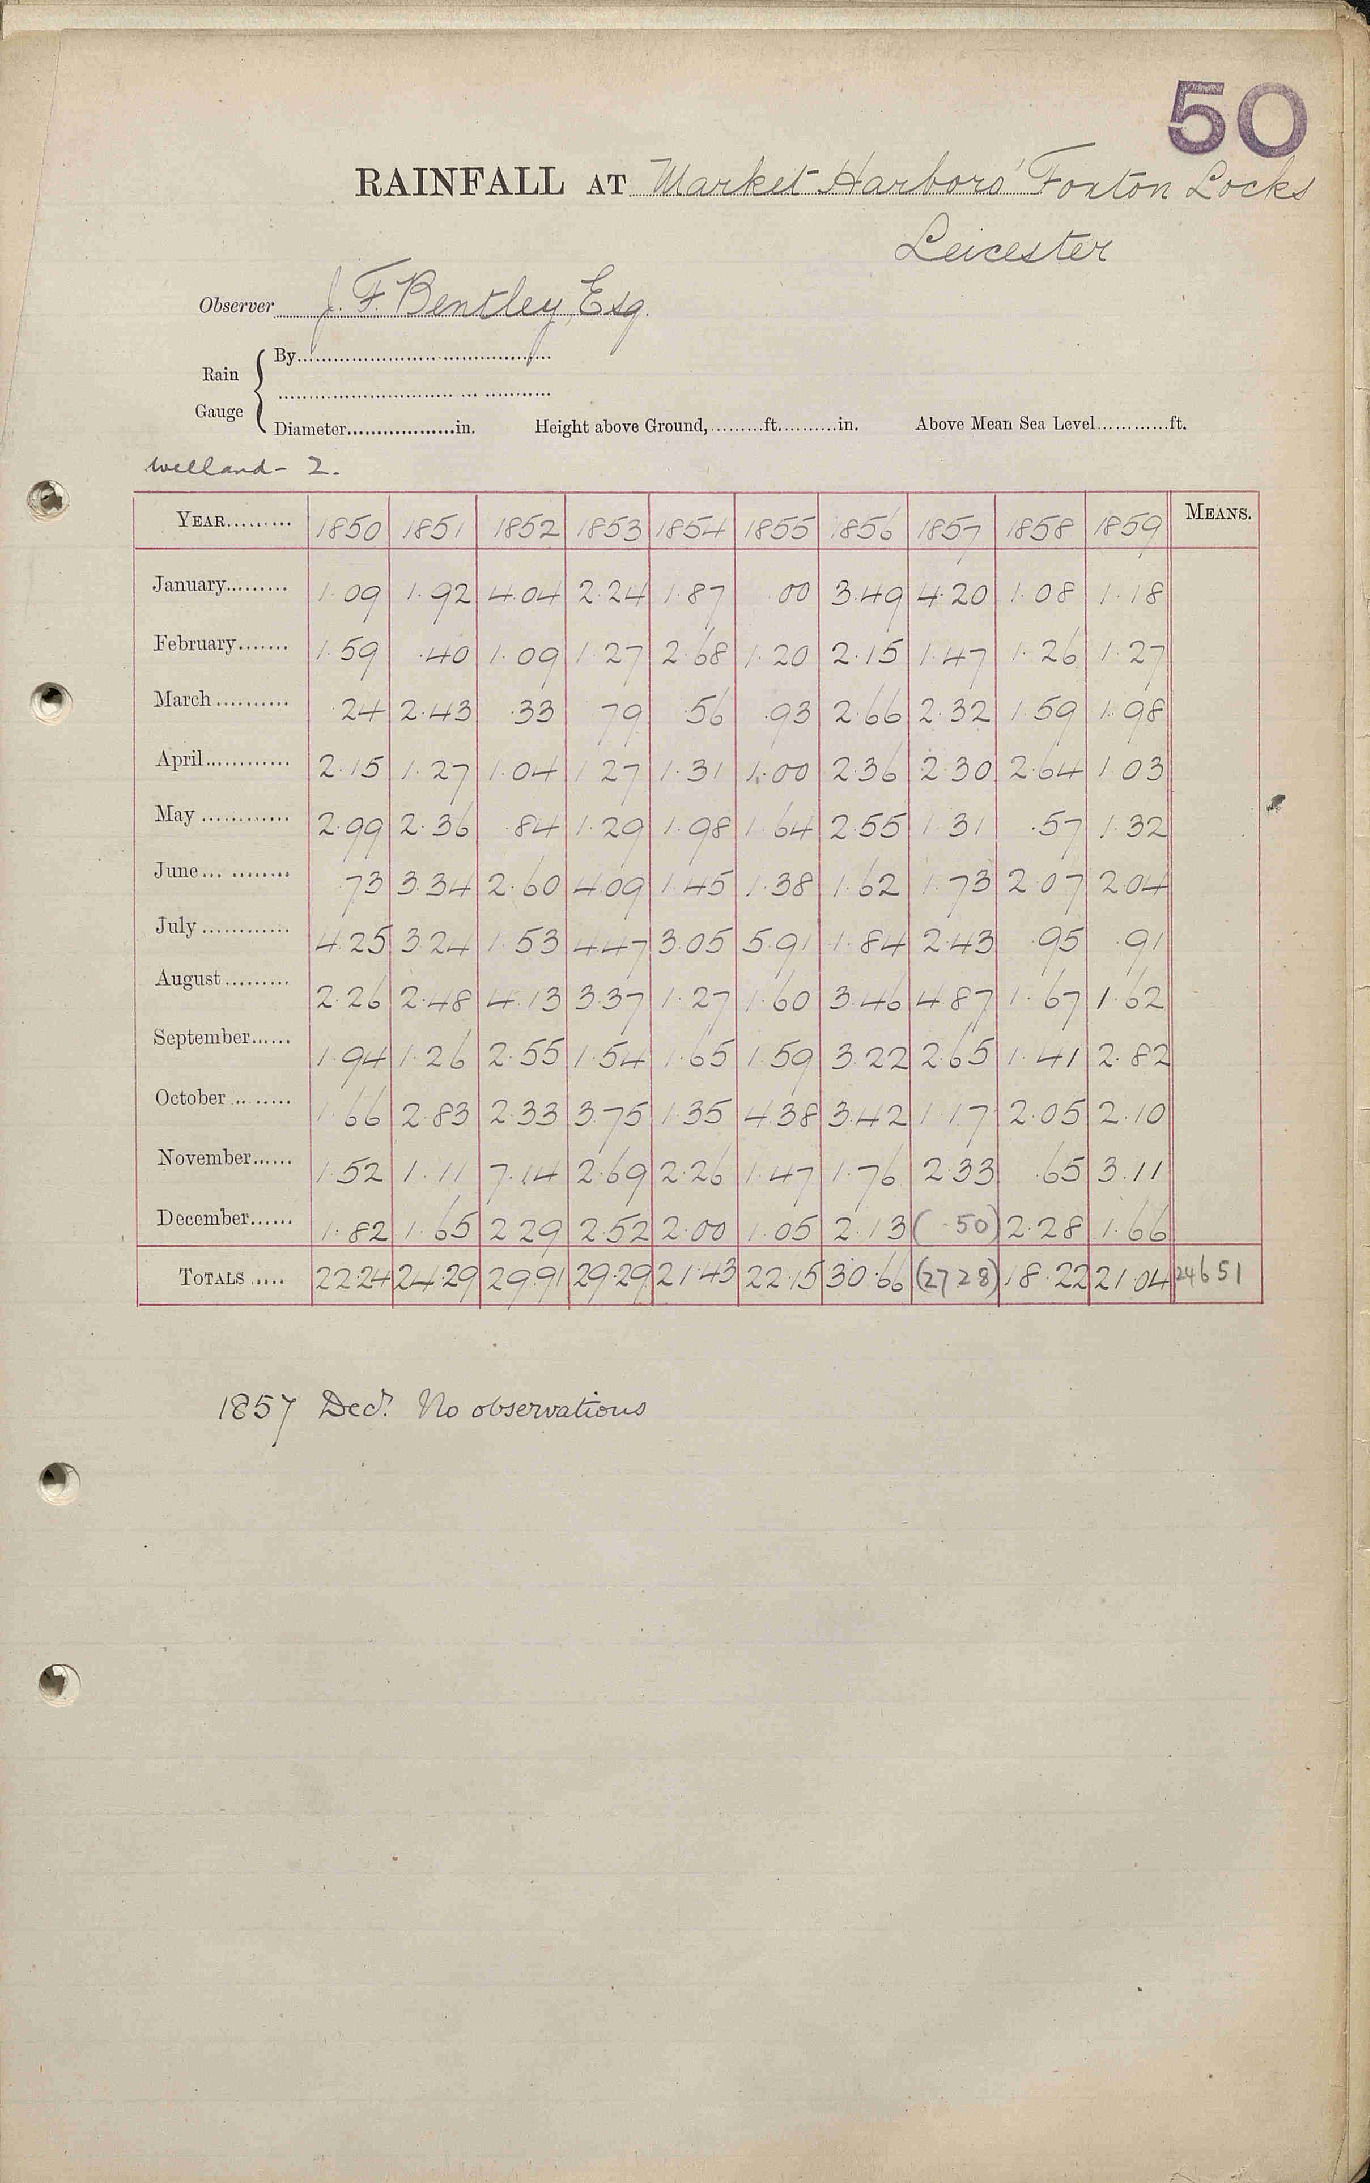 50
RAINFALL AT Market Harboro' Foxton Locks
Leicester
Observer J. F. Bentley, Esq.
Rain Gauge { By
Diameter in. Height above Ground, ft. in. Above Mean Sea Level ft.
Welland - 2.
YEAR 1850 1851 1852 1853 1854 1855 1856 1857 1858 1859 MEANS.
January 1.09 1.92 4.04 2.24 1.87 .00 3.49 4.20 1.08 1.18
February 1.59 .40 1.09 1.27 2.68 1.20 2.15 1.47 1.26 1.27
March .24 2.43 .33 .79 .56 .93 2.66 2.32 1.59 1.98
April 2.15 1.27 1.04 1.27 1.31 1.00 2.36 2.30 2.64 1.03
May 2.99 2.36 .84 1.29 1.98 1.64 2.55 1.31 .57 1.32
June .73 3.34 2.60 4.09 1.45 1.38 1.62 1.73 2.07 2.04
July 4.25 3.24 1.53 4.47 3.05 5.91 1.84 2.43 .95 .91
August 2.26 2.48 4.13 3.37 1.27 1.60 3.46 4.87 1.67 1.62
September 1.94 1.26 2.55 1.54 1.65 1.59 3.22 2.65 1.41 2.82
October 1.66 2.83 2.33 3.75 1.35 4.38 3.42 1.17 2.05 2.10
November 1.52 1.11 7.14 2.69 2.26 1.47 1.76 2.33 .65 3.11
December 1.82 1.65 2.29 2.52 2.00 1.05 2.13 (.50) 2.28 1.66
TOTALS 22.24 24.29 29.91 29.29 21.43 22.15 30.66 (27 28) 18.22 21.04 246 51
1857 Decr. No observations